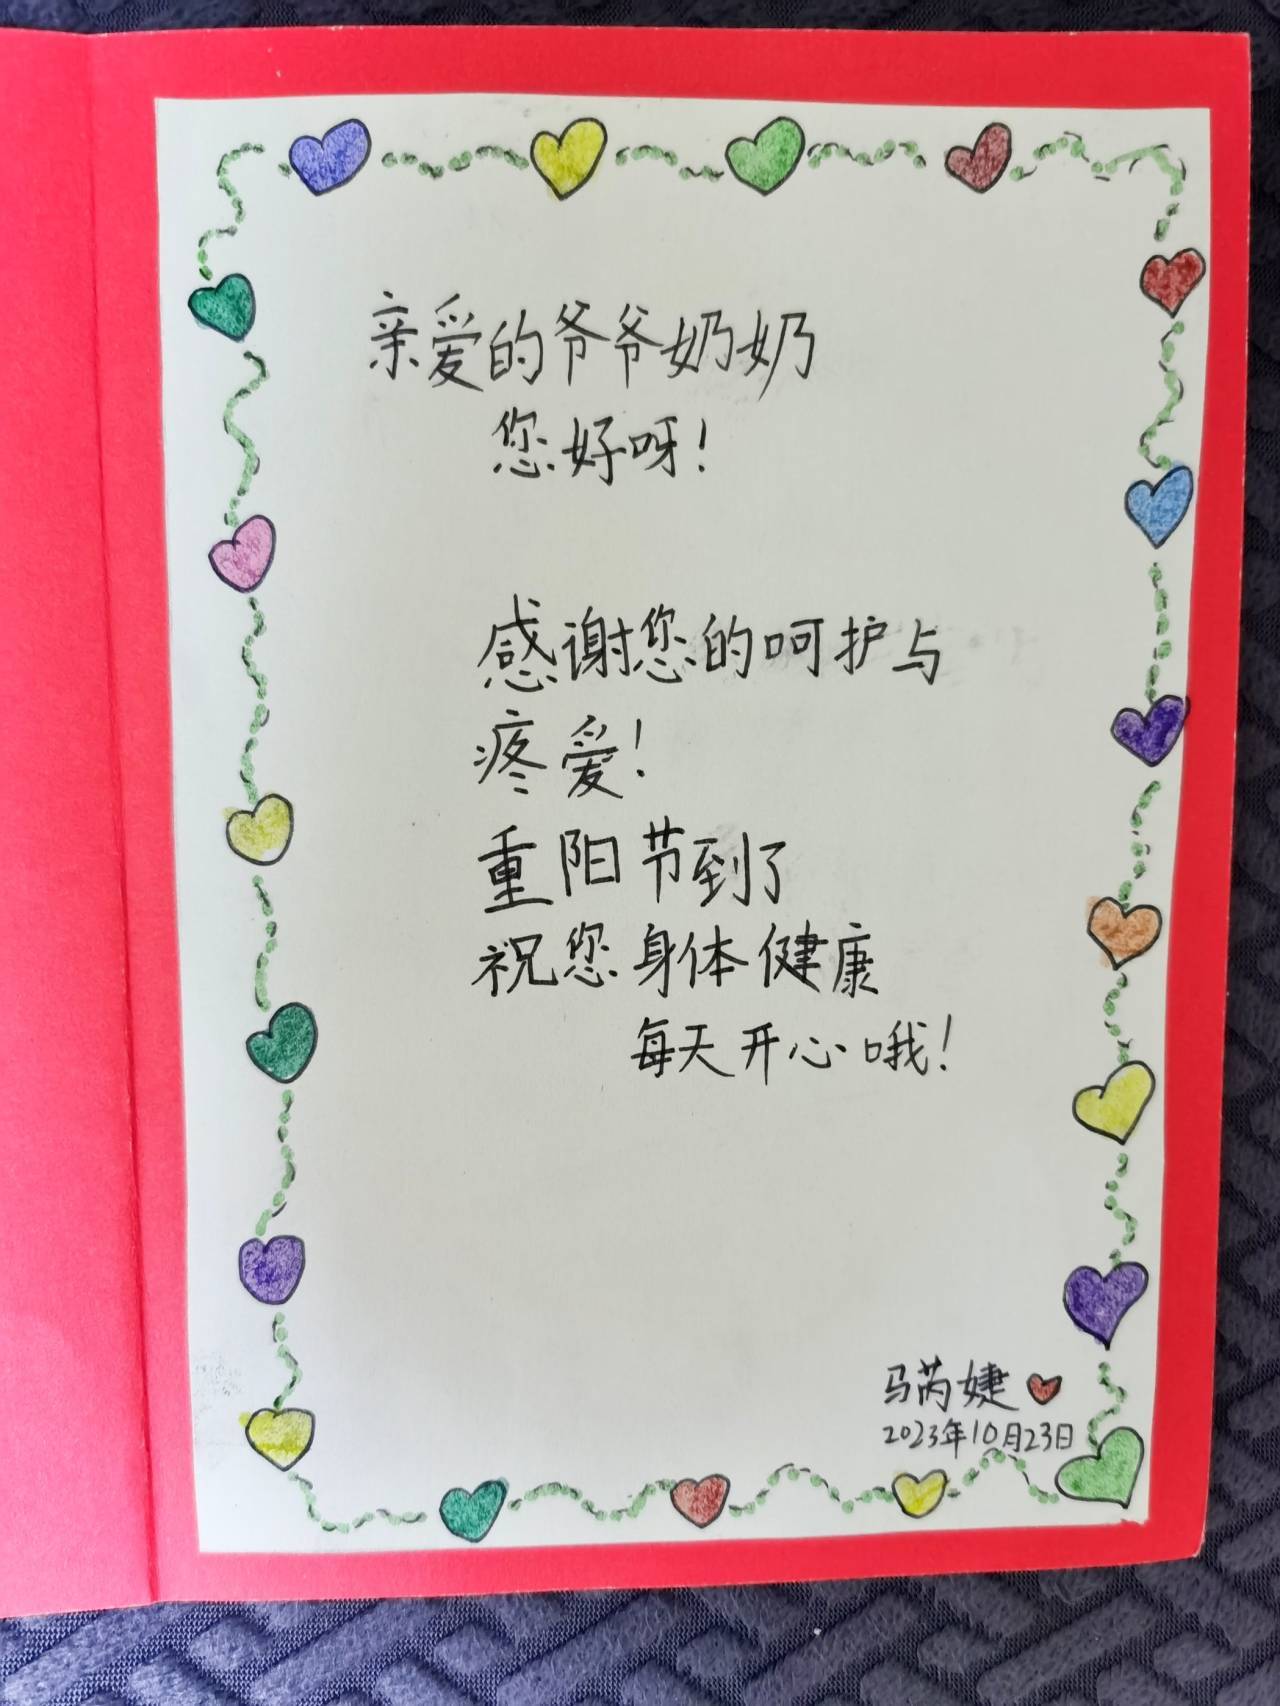 亲爱的爷爷奶奶
您好呀!
感谢您的呵护与
疼爱!
重阳节到了
祝您身体健康
每天开心哦!
马芮婕
2023年10月23日